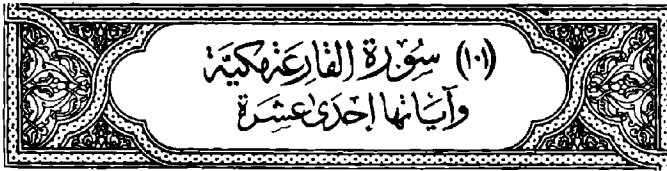 (١٠١) سُورَة القَارِعَة مَكيَّة
وَآيَاتهَا إحْدَى عَشرَة